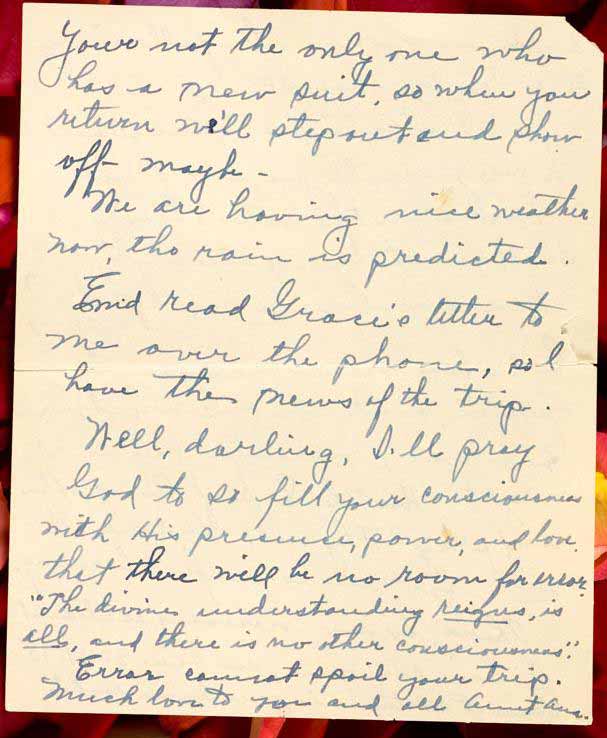 Your not the only one who
has a new suit, so when you
return we'll step out and show
off maybe -
We are having nice weather
now, tho rain is predicted.
Enid read Gracie's letter to
me over the phone, so I
have the news of the trip.
Well, darling, I'll pray
God to so fill your consciousness
with His presence, power, and love
that there will be no room for error.
"The divine understanding reigns, is
all, and there is no other consciousness."
Error cannot spoil your trip.
Much love to you and all Aunt Ana.